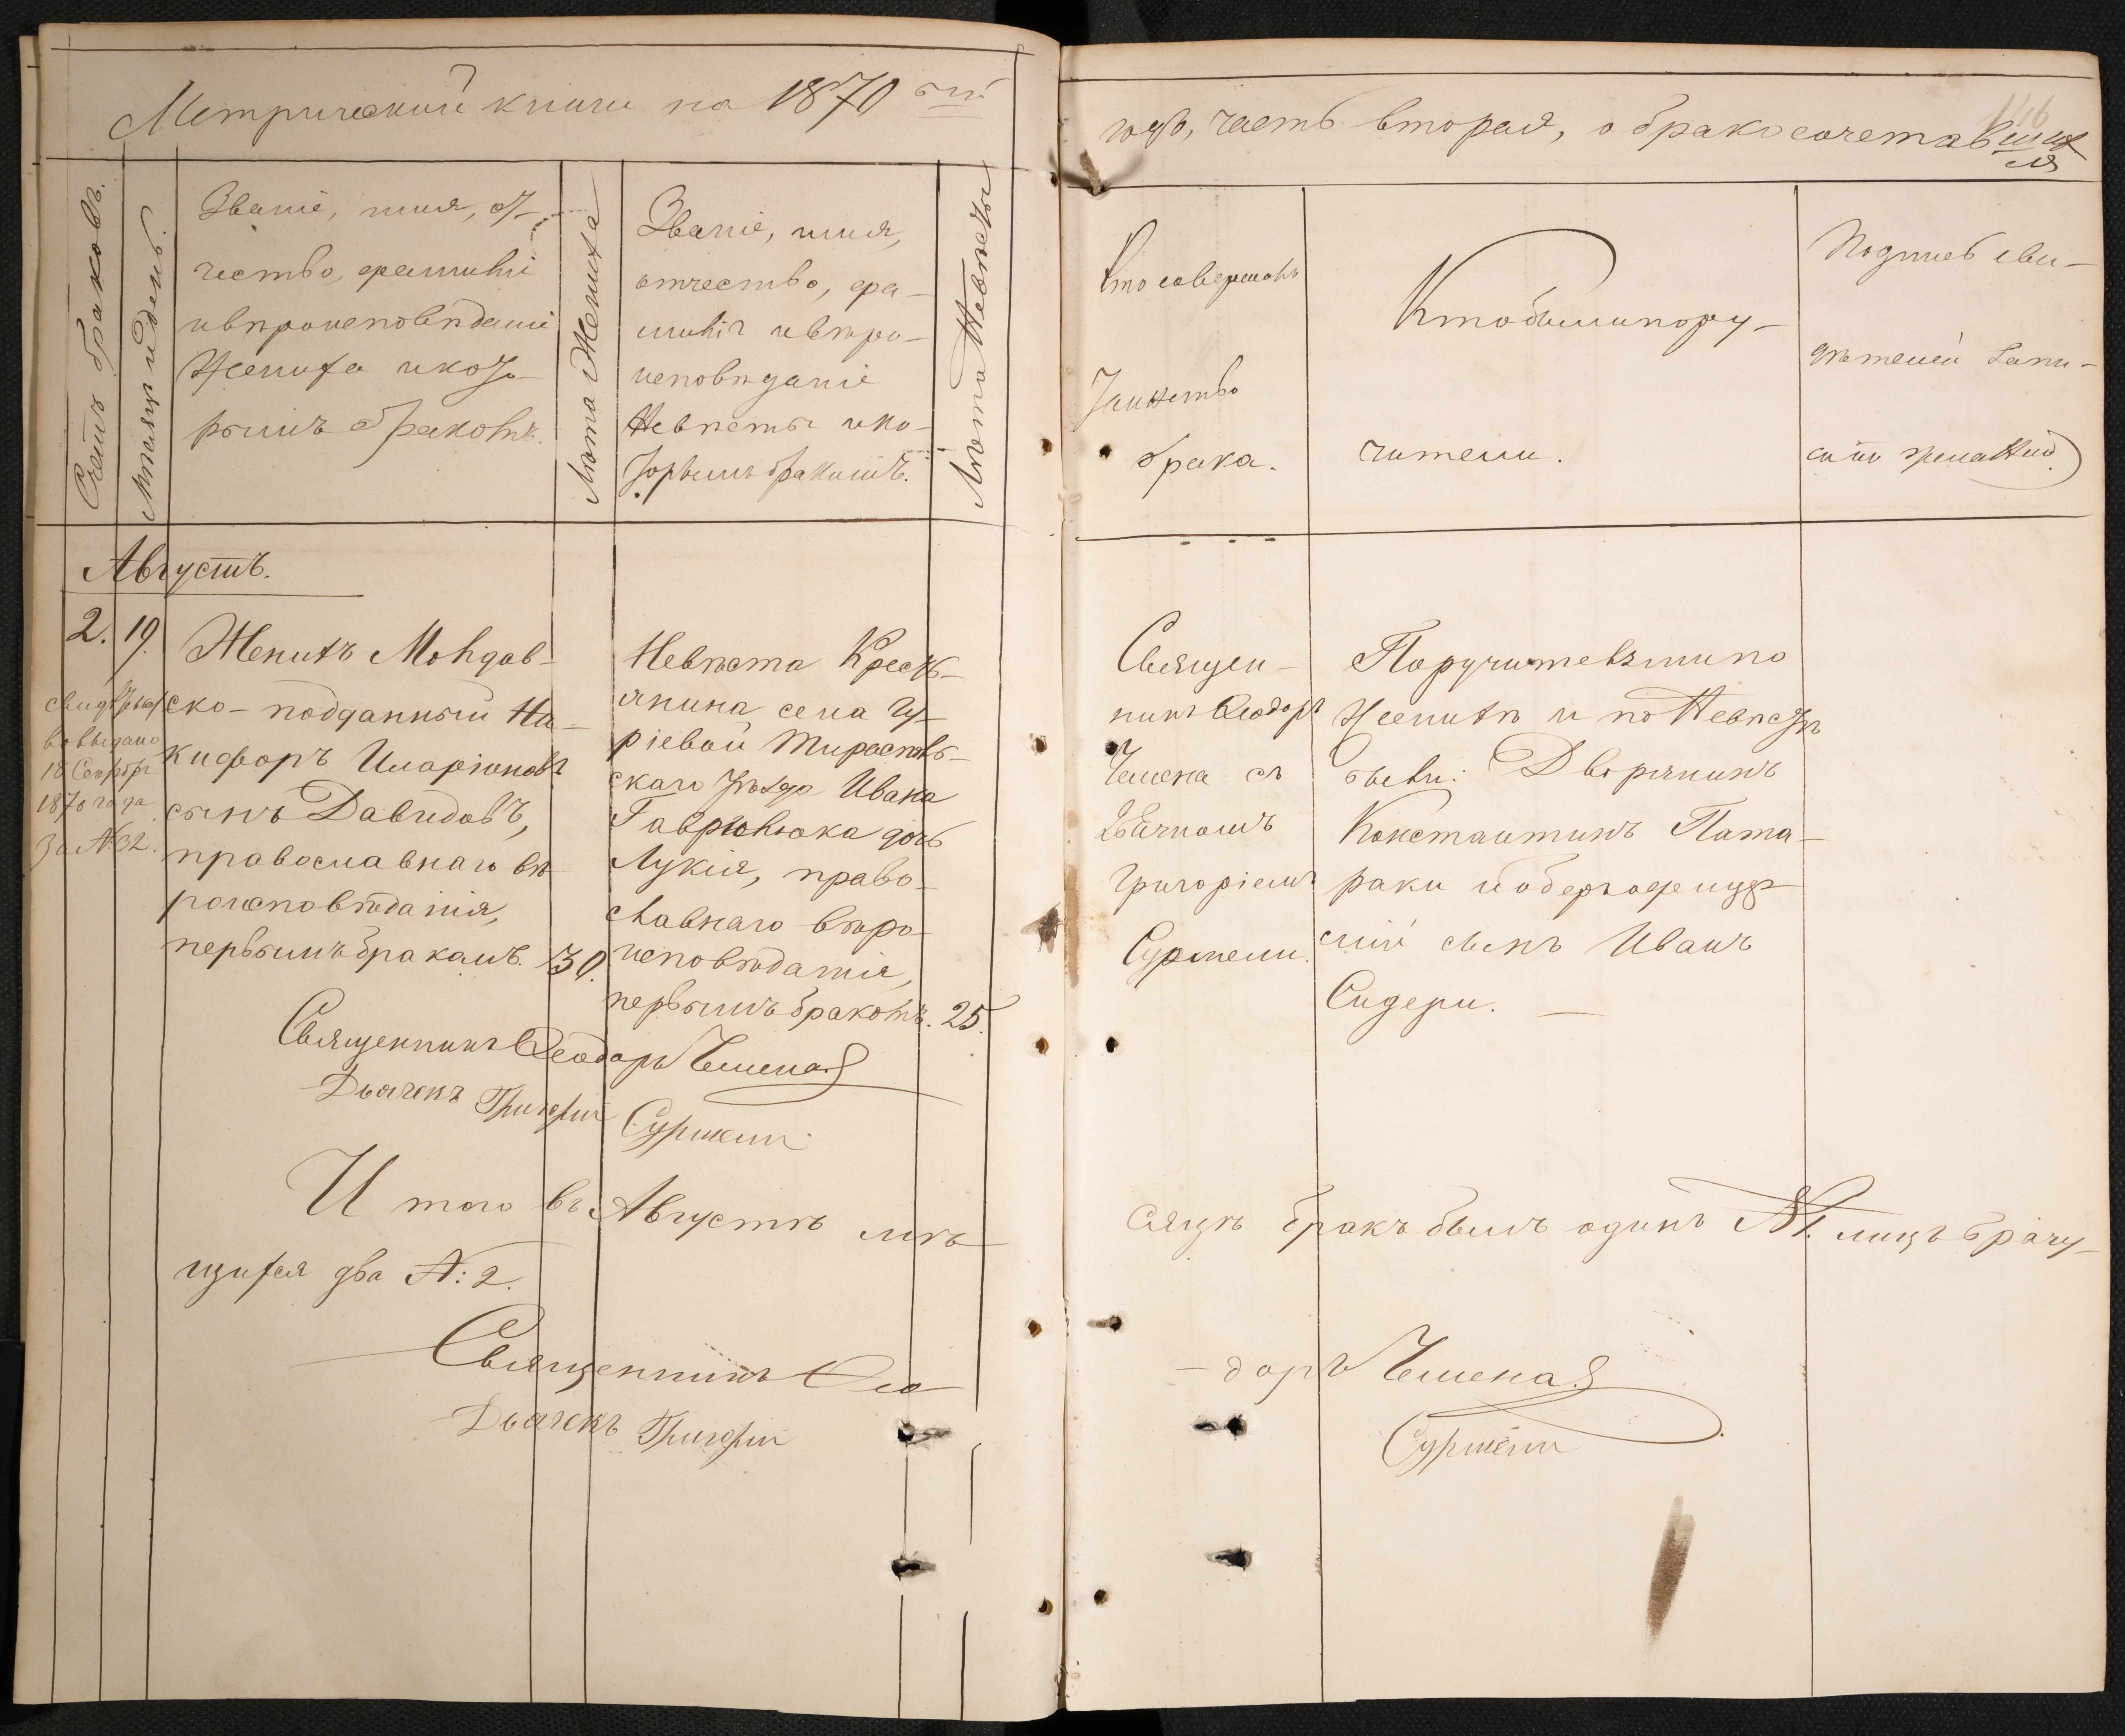 Метрической книги на 1870 ый
годъ, часть вторая, о бракосочетавших
ся
116
Счетъ браковъ.
Мѣсяцъ и день.
Званіе, имя, от-
чество, фамилія
и вѣроисповѣданіе
Жениха и кото-
рымъ бракомъ.
Лѣта Жениха
Званіе, имя,
отчество, фа-
милія и вѣро-
исповѣданіе
Невѣсты и ко-
торымъ бракомъ.
Лѣта Невѣсты
Кто совершалъ
Таинство
брака.
Кто были пору-
чители.
Подпись сви-
дѣтелей запи-
си по желанію
Августъ.
2. 19.
Женихъ Молдав-
ско-подданный Ни-
кифоръ Иларіоновъ
сынъ Давидовъ,
православнаго вѣ-
роисповѣданія,
первымъ бракомъ. 30.
во выдано
18 Сентябр
1870 года
За №32.
Невѣста Крестъ-
янина села
ріевой Тираспольс-
скаго уѣзда Ивана
Гаврилюка дочь
Лукія, право-
славнаго вѣро-
исповѣданія,
первымъ бракомъ. 25.
Священ-
никъ Ѳеодоръ
Чешена съ
Дьячкомъ
Григоріемъ
Сурмели.
Поручителями по
Женихѣ и по Невѣстѣ
были: Дворянинъ
Константинъ Пата-
раки и оберъ-офицер-
скій сынъ Иванъ
Сидери.
Священникъ Ѳеодоръ Чешена
Дьячекъ Григорій Сурмели
Итого въ Августѣ мѣ-
сяцѣ бракъ былъ одинъ №1. лицъ брачу-
щихся два №: 2.
Священникъ Ѳео-
-доръ Чешена
Дьячекъ Григорій
Сурмели